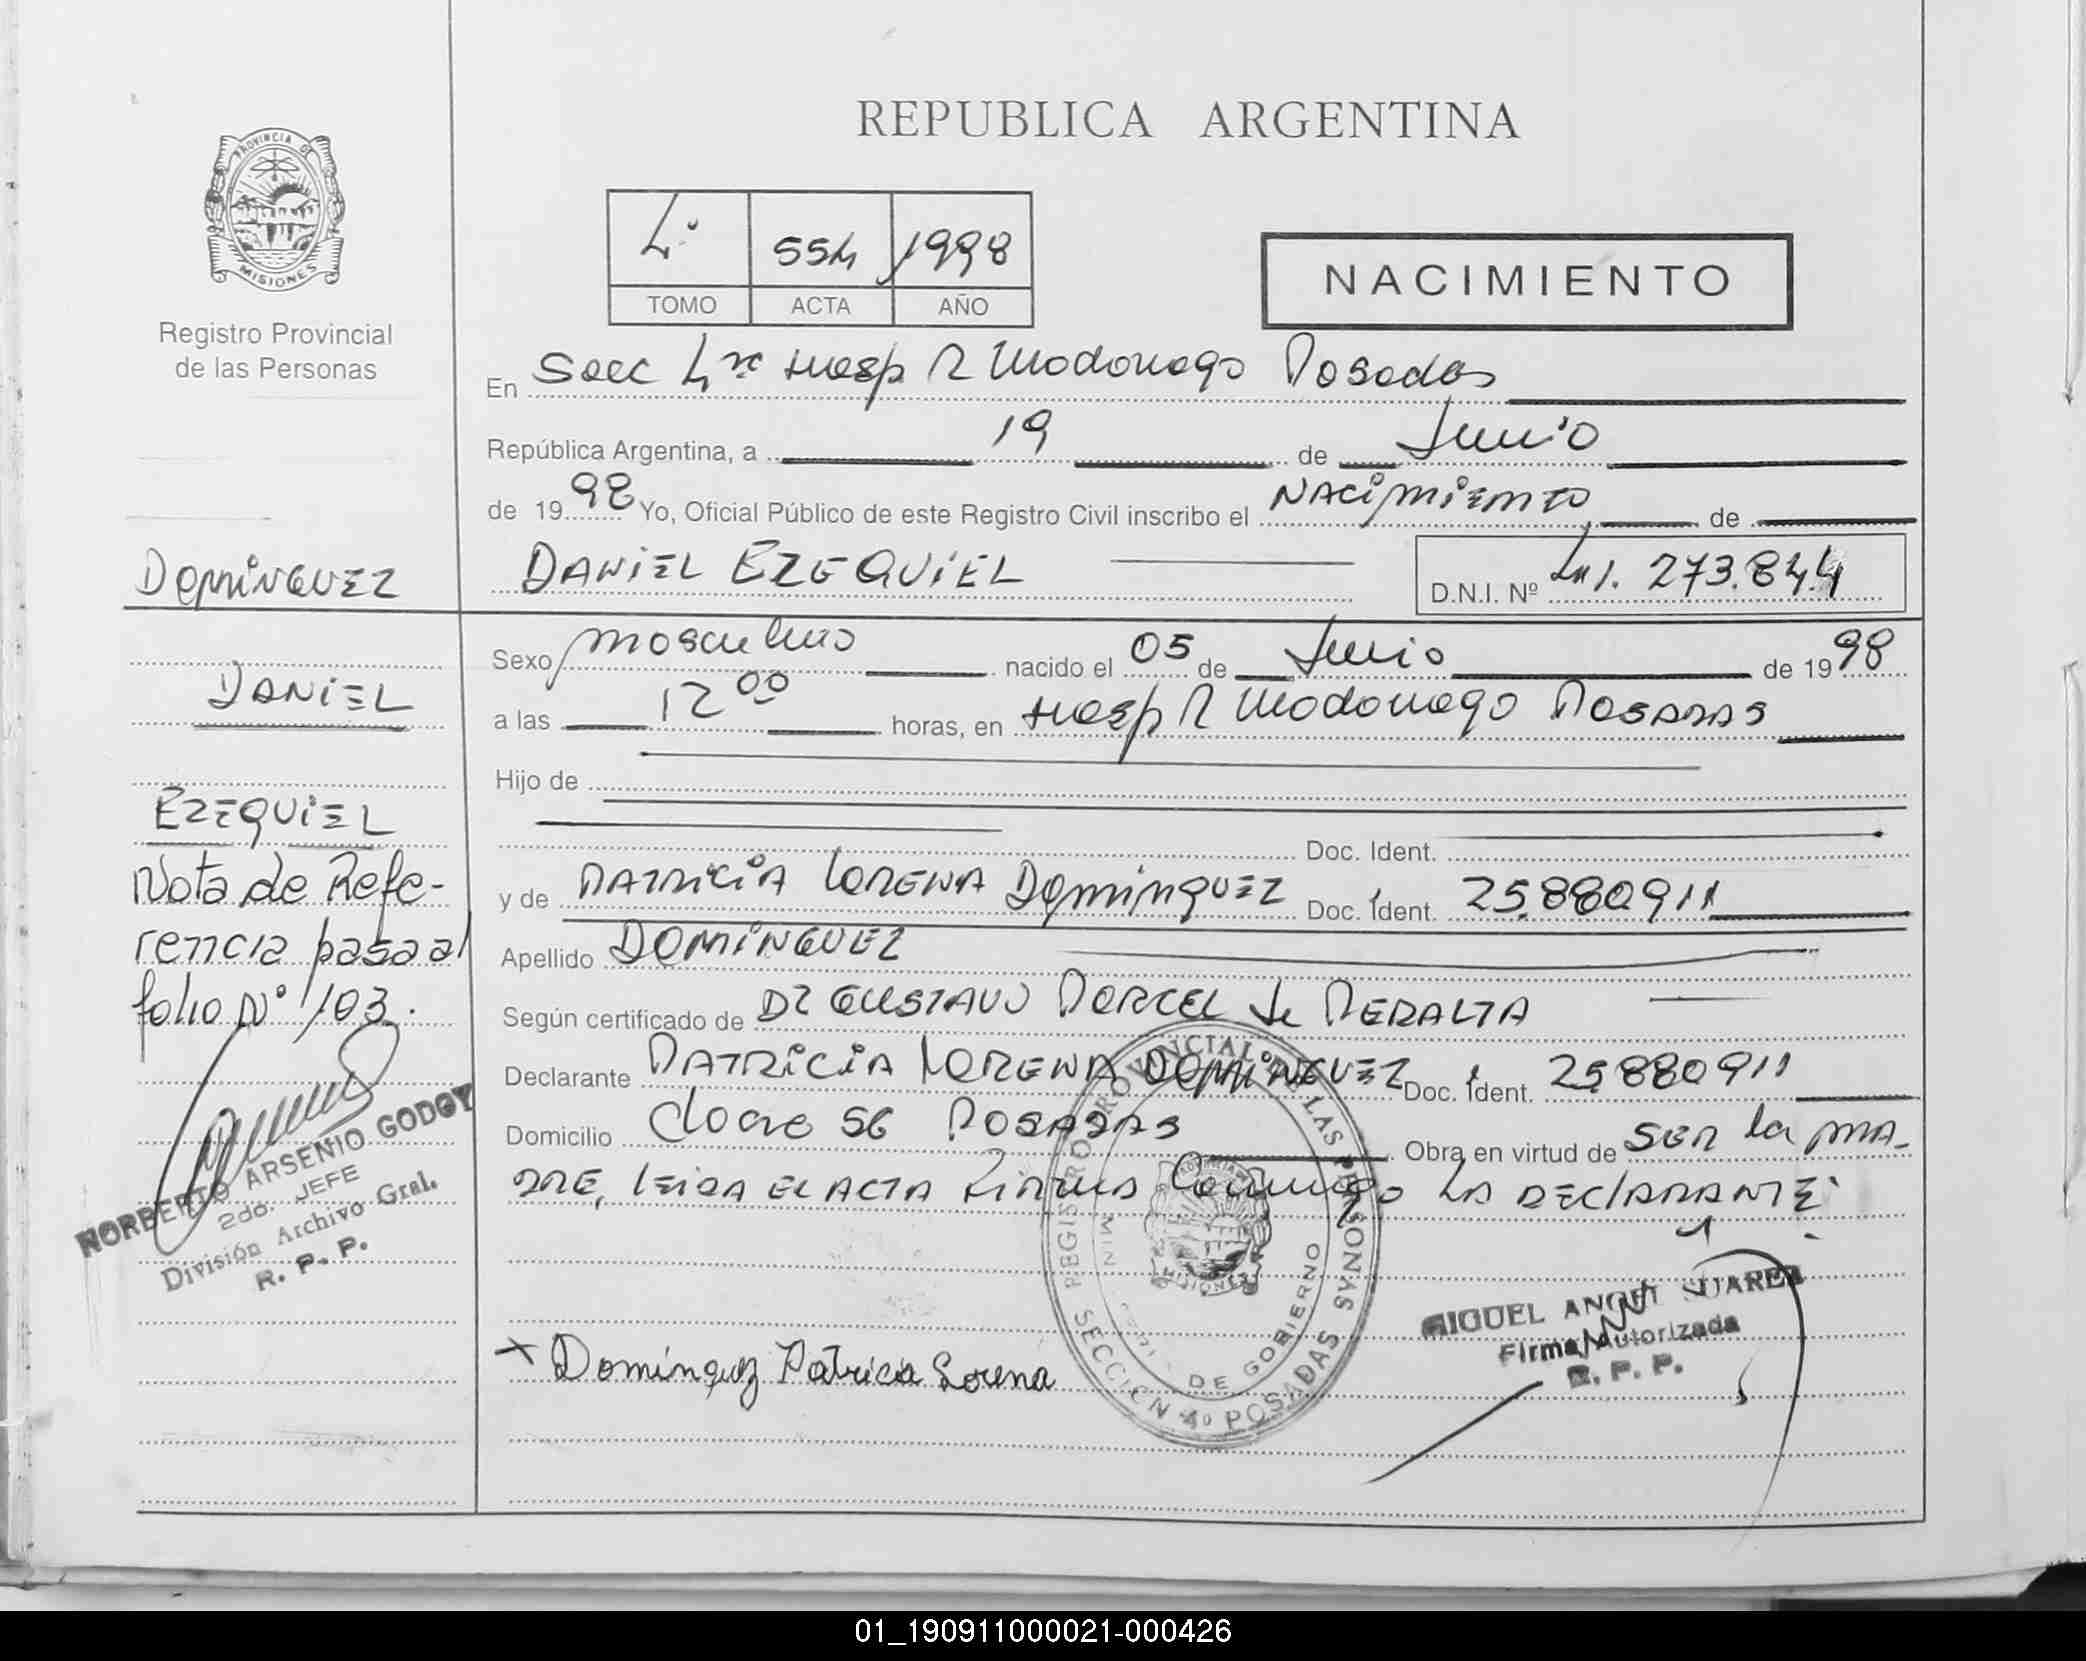 REPUBLICA ARGENTINA
PROVINCIA DE
MISIONES
Registro Provincial
de las Personas
4º 554 1998
TOMO ACTA AÑO
NACIMIENTO
En Secc 4ta Hosp R Madariaga Posadas
República Argentina, a 19 de Junio
de 1998 Yo, Oficial Público de este Registro Civil inscribo el NACIMIENTO de
DANIEL EZEQUIEL D.N.I. Nº 41.273.844
Sexo masculino nacido el 05 de Junio de 1998
a las 12 00 horas, en Hosp R Madariaga POSADAS
Hijo de
Doc. Ident.
y de PATRICIA LORENA DOMINGUEZ Doc. Ident. 25.880911
Apellido DOMINGUEZ
Según certificado de DR GUSTAVO de PERALTA
Declarante PATRICIA LORENA DOMINGUEZ Doc. Ident. 25880911
Domicilio 56 POSADAS Obra en virtud de SER la MA-
DRE, leida EL ACTA FIRMA Conmigo LA DECLARANTE.
x Dominguez Patricia Lorena
MIGUEL ANGEL SUAREZ
Firma Autorizada
R. P. P.
REGISTRO PROVINCIAL DE LAS PERSONAS
DE GOBIERNO
MISIONES
SECCION 4º POSADAS
DOMINGUEZ
DANIEL
EZEQUIEL
Nota de Refe-
rencia pasa al
folio Nº 103.
NORBERTO ARSENIO GODOY
2do. JEFE
División Archivo Gral.
R. P. P.
01_190911000021-000426